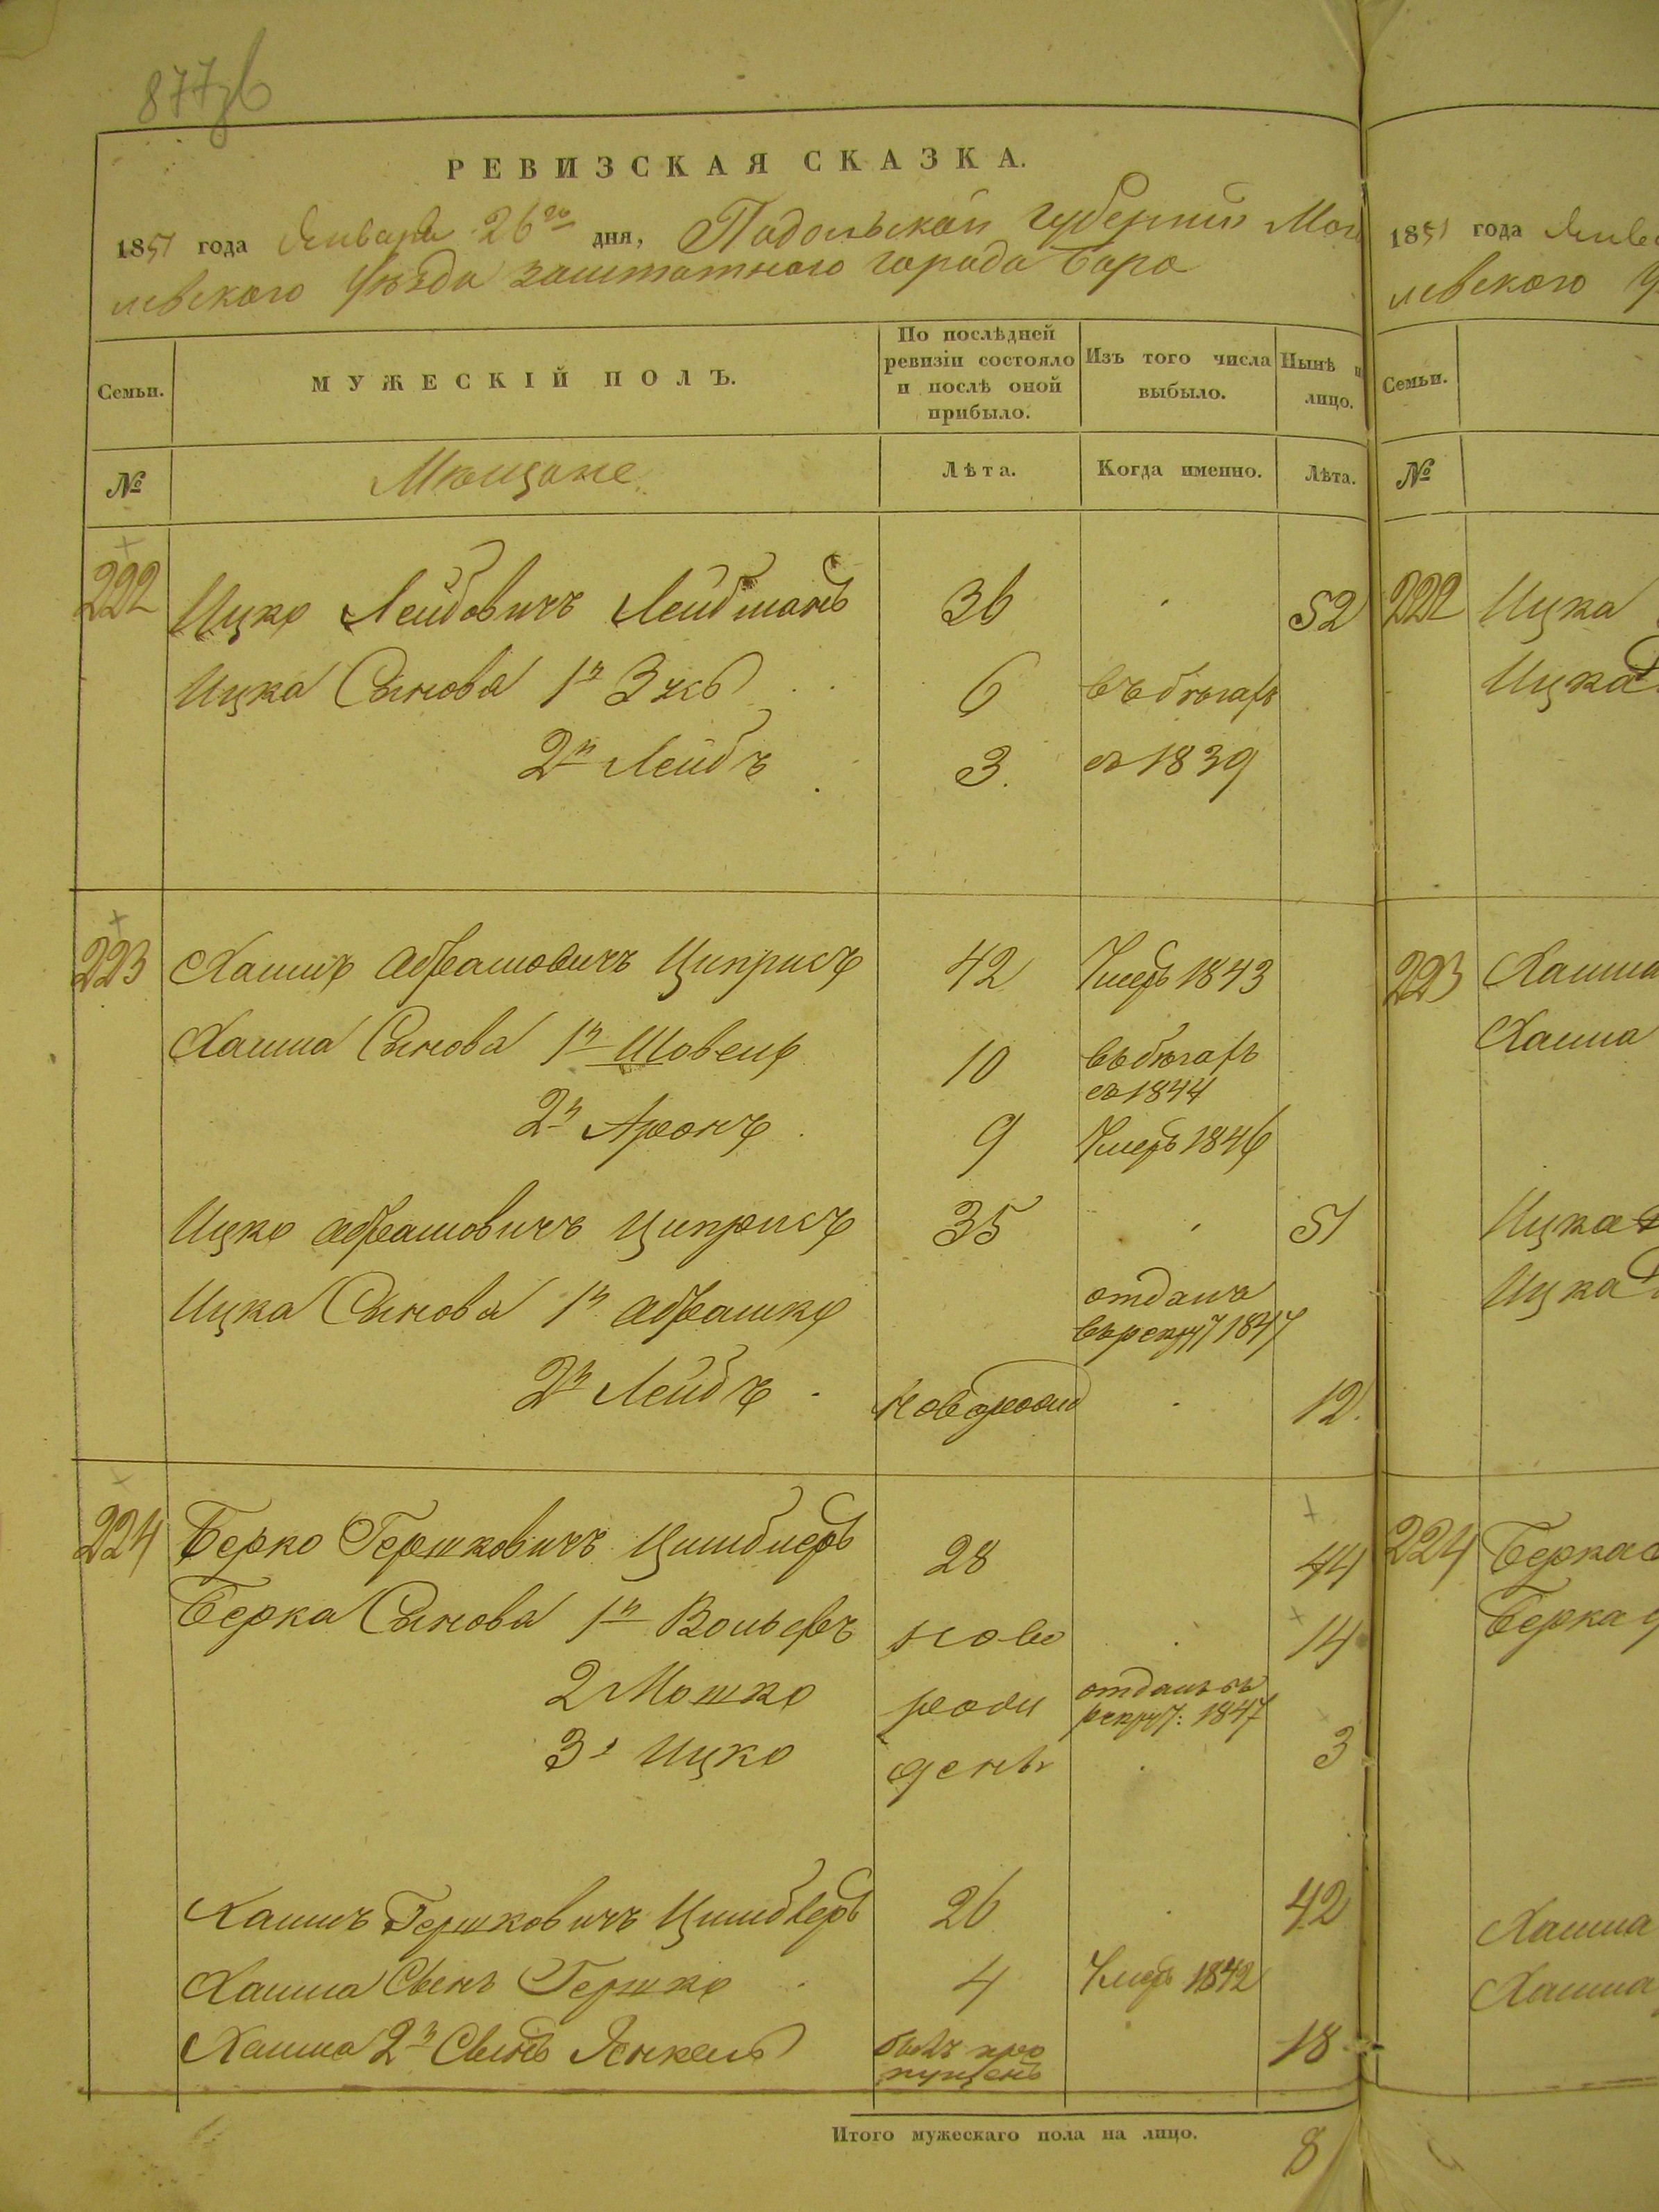 877
РЕВИЗСКАЯ СКАЗКА.
1851 года Января 26го дня, Подольской губерніи Мог
левского уѣзда заштатного города Бара
Семьи. МУЖЕСКІЙ ПОЛЪ. По послѣдней ревизіи состояло и послѣ оной прибыло. Изъ того числа выбыло. Нынѣ н лицо.
№ Мѣщане Лѣта. Когда именно. Лѣта.
222 Ицко Лейбовичъ Лейбманъ 36 52
Ицка Сынова 1й 6 въ бѣгахъ
2й Лейбъ 3. съ 1839
223 Хаимъ Абрамовичъ Циприсъ 42 Умеръ 1843
Хаима Сынова 1й 10 въ бѣгахъ
съ 1844
2й Аронъ 9 Умеръ 1846
Ицко Абрамовичъ Циприсъ 35 51
Ицка Сынова 1й Абрамко отданъ
въ рекрут 1847
2й Лейбъ новорожд 12.
224 Берко Гершковичъ Цимблеръ 28 44
Берка Сынова 1й Вольфъ ново 14
2 Мошко рожд отданъ въ
рекрут: 1847
3й Ицко денъ 3
Хаимъ Гершковичъ Цимблеръ 26 42
Хаима Сынъ Гершко 4 Умеръ 1842
Хаима 2й Сынъ Янкель былъ про
пущенъ 18
Итого мужескаго пола на лицо. 8
1851 года Январ
левского у
Семьи.
№
222 Ицка
Ицка
223 Хаима
Хаима
Ицка
Ицка
224 Берка
Берка
Хаима
Хаима